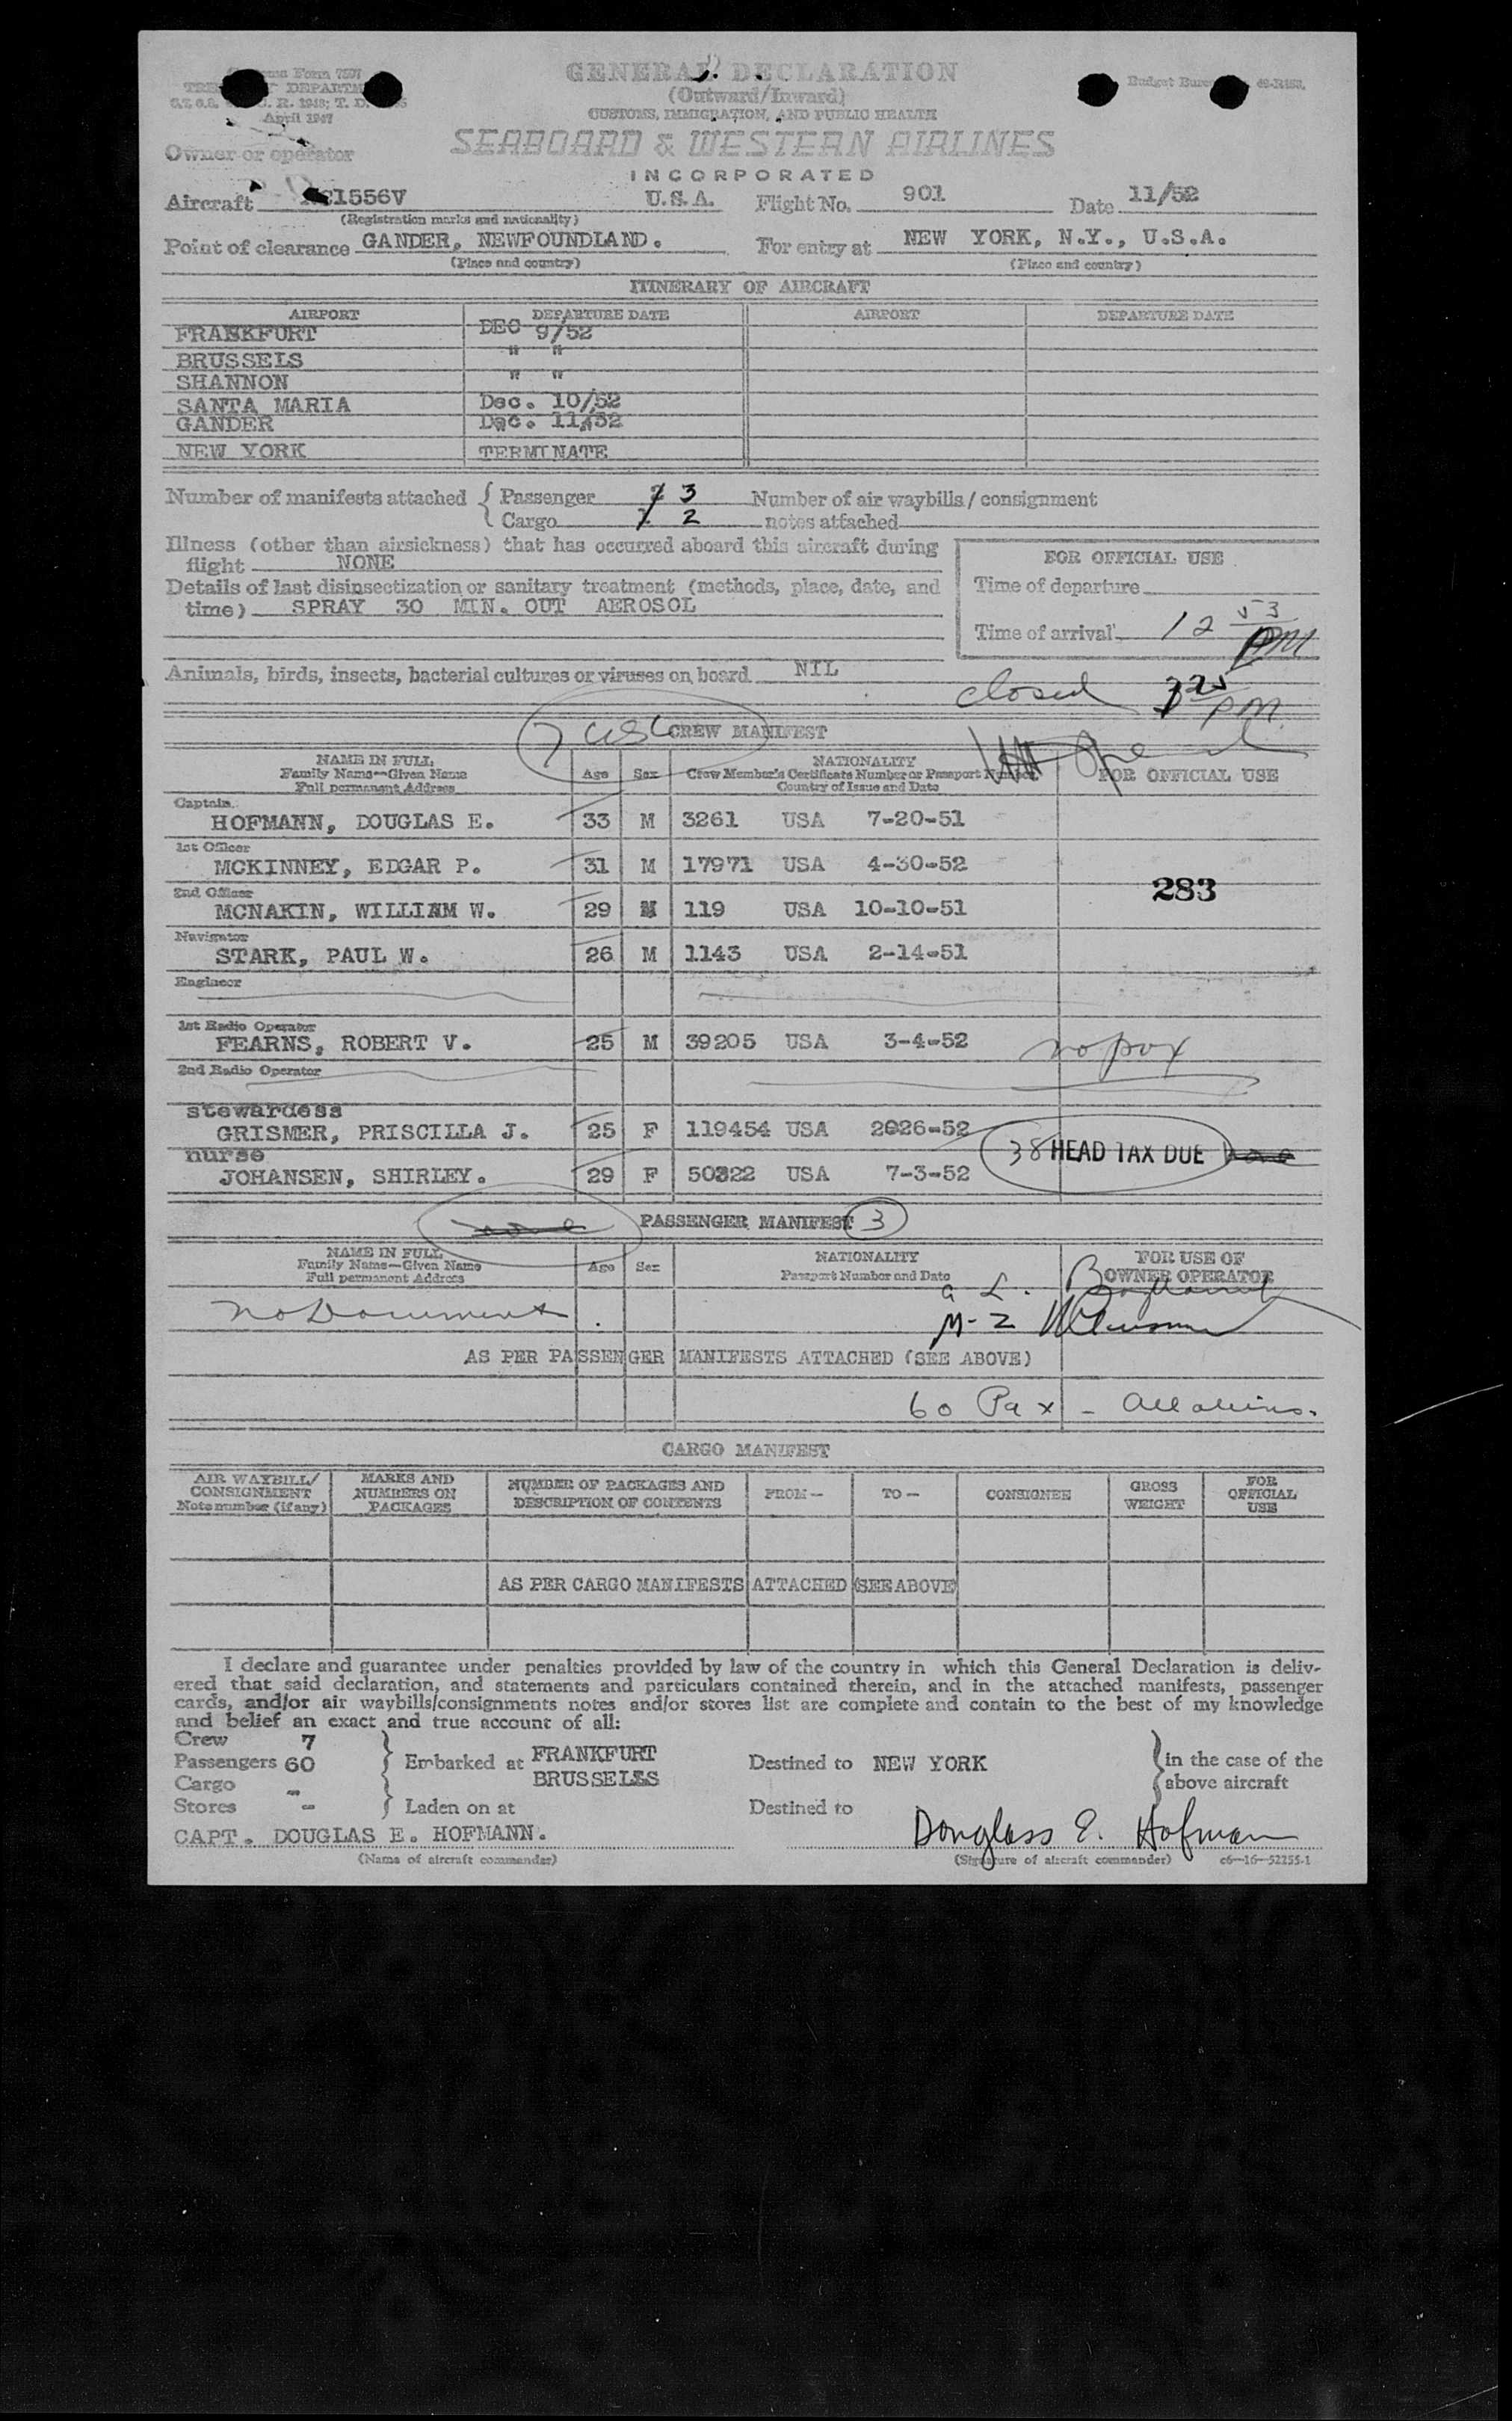 GENERAL DECLARATION
(Outward/Inward)
CUSTOMS, IMMIGRATION, AND PUBLIC HEALTH
Form 7507
April 1947
Budget
Owner or operator
SEABOARD & WESTERN AIRLINES
INCORPORATED
Aircraft 1556V U.S.A. Flight No. 901 Date 11/52
(Registration marks and nationality)
Point of clearance GANDER, NEWFOUNDLAND. For entry at NEW YORK, N.Y., U.S.A.
(Place and country) (Place and country)
ITINERARY OF AIRCRAFT
AIRPORT DEPARTURE DATE AIRPORT DEPARTURE DATE
FRANKFURT DEC 9/52
BRUSSELS " "
SHANNON " "
SANTA MARIA Dec. 10/52
GANDER Dec. 11/52
NEW YORK TERMINATE
Number of manifests attached { Passenger 3 Number of air waybills / consignment
Cargo 2 notes attached
Illness (other than airsickness) that has occurred aboard this aircraft during
flight NONE
Details of last disinsectization or sanitary treatment (methods, place, date, and
time) SPRAY 30 MIN. OUT AEROSOL
FOR OFFICIAL USE
Time of departure
Time of arrival 12 53 PM
Animals, birds, insects, bacterial cultures or viruses on board NIL
closed 3 25 PM
7 usc CREW MANIFEST
NAME IN FULL
Family Name—Given Name
Full permanent Address
Age Sex
NATIONALITY
Crew Member's Certificate Number or Passport Number
Country of Issue and Date
FOR OFFICIAL USE
Captain
HOFMANN, DOUGLAS E. 33 M 3261 USA 7-20-51
1st Officer
MCKINNEY, EDGAR P. 31 M 17971 USA 4-30-52
283
2nd Officer
MCNAKIN, WILLIAM W. 29 M 119 USA 10-10-51
Navigator
STARK, PAUL W. 26 M 1143 USA 2-14-51
Engineer
1st Radio Operator
FEARNS, ROBERT V. 25 M 39205 USA 3-4-52
no pox
2nd Radio Operator
stewardess
GRISMER, PRISCILLA J. 25 F 119454 USA 2026-52
38 HEAD TAX DUE none
nurse
JOHANSEN, SHIRLEY. 29 F 50322 USA 7-3-52
none PASSENGER MANIFEST 3
NAME IN FULL
Family Name—Given Name
Full permanent Address
Age Sex
NATIONALITY
Passport Number and Date
FOR USE OF
OWNER OPERATOR
No Document
AS PER PASSENGER MANIFESTS ATTACHED (SEE ABOVE)
60 Pax - All aliens.
CARGO MANIFEST
AIR WAYBILL/
CONSIGNMENT
Note number (if any)
MARKS AND
NUMBERS ON
PACKAGES
NUMBER OF PACKAGES AND
DESCRIPTION OF CONTENTS
FROM— TO— CONSIGNEE
GROSS
WEIGHT
FOR
OFFICIAL
USE
AS PER CARGO MANIFESTS ATTACHED (SEE ABOVE)
I declare and guarantee under penalties provided by law of the country in which this General Declaration is deliv-
ered that said declaration, and statements and particulars contained therein, and in the attached manifests, passenger
cards, and/or air waybills/consignments notes and/or stores list are complete and contain to the best of my knowledge
and belief an exact and true account of all:
Crew 7
Passengers 60 Embarked at FRANKFURT Destined to NEW YORK in the case of the
Cargo - BRUSSELS above aircraft
Stores - Laden on at Destined to
CAPT. DOUGLAS E. HOFMANN. Douglass E. Hofmann
(Name of aircraft commander) (Signature of aircraft commander) c6—16—52255-1